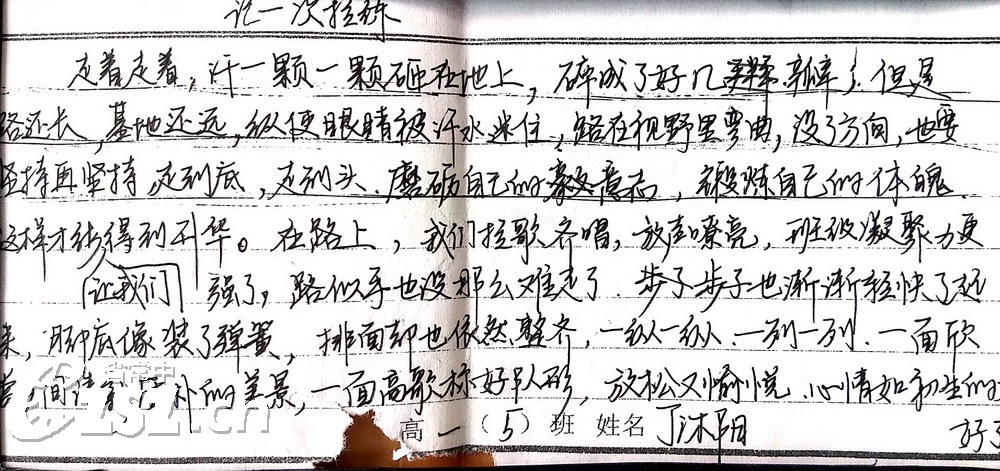 记一次拉练
走着走着，汗一颗一颗砸在地上，碎成了好几瓣了.但是
路还长，基地还远，纵使眼睛被汗水迷住，路在视野里弯曲，没了方向，也要
坚持再坚持，走到底，走到头.磨砺自己的意志，锻炼自己的体魄.
这样才能得到升华。在路上，我们拉歌齐唱，放声嘹亮，班级凝聚力更
让我们
强了，路似乎也没那么难走了.步子步子也渐渐轻快了起
来，脚底像装了弹簧，排面却也依然整齐，一纵一纵.一列一列.一面欣
间 外的美景，一面高歌标好队形，放松又愉悦.心情如初生的
高一（5）班 姓名 丁沐阳
好